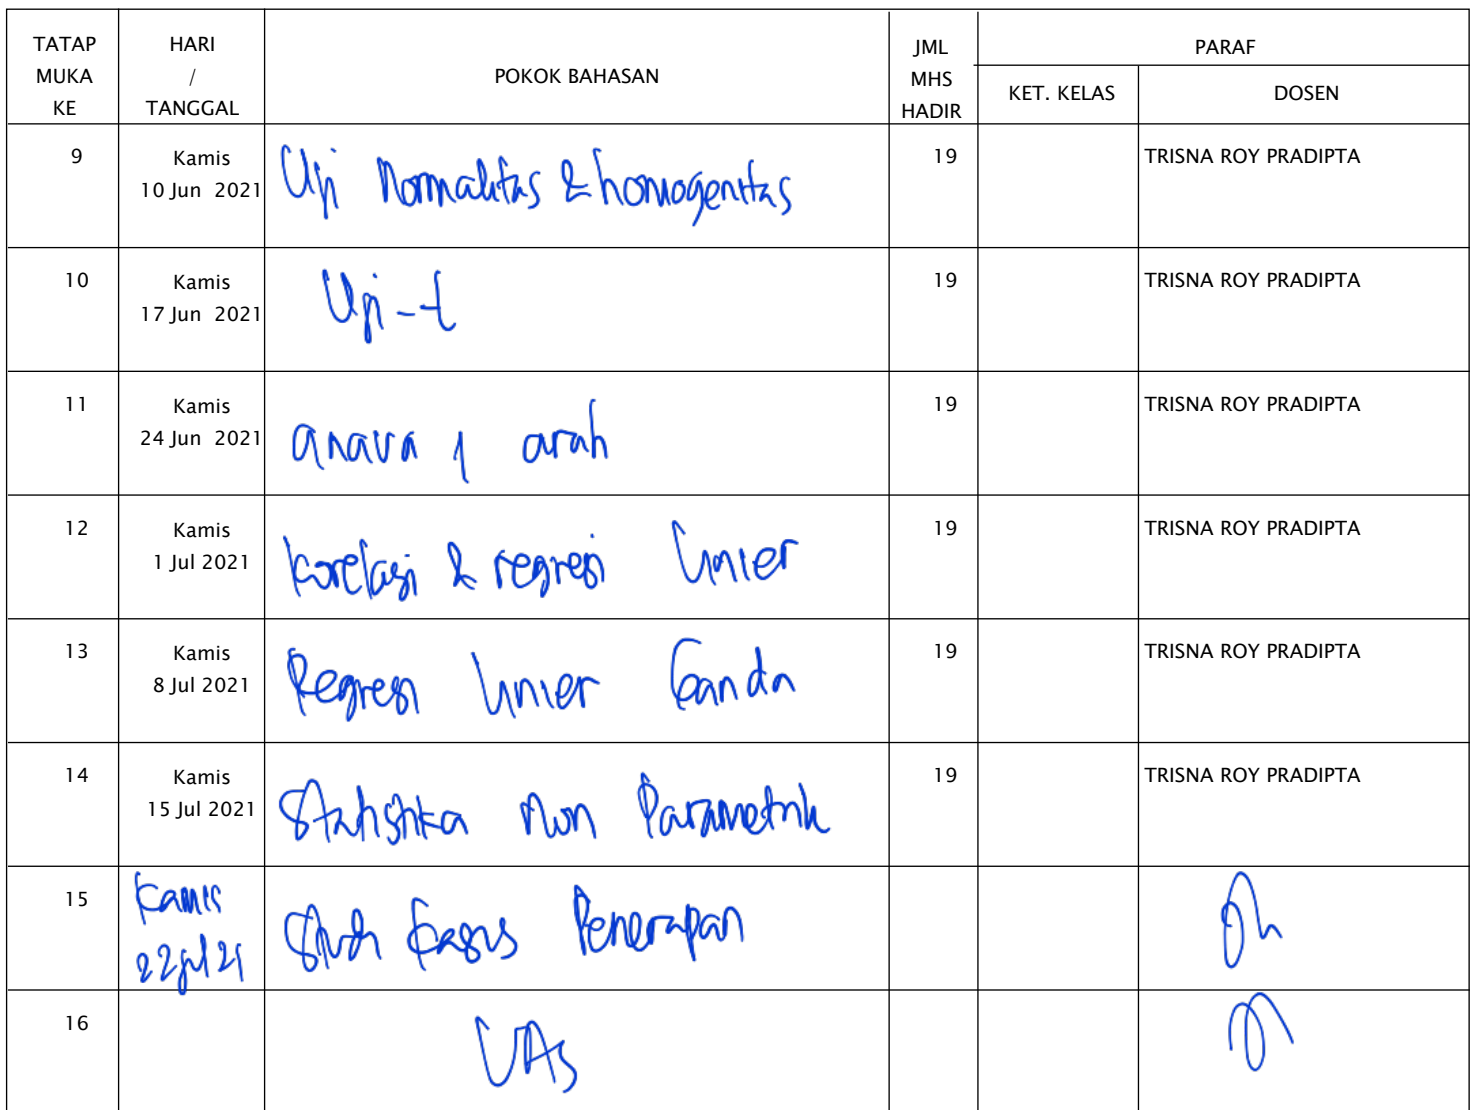 TATAP MUKA KE HARI / TANGGAL POKOK BAHASAN JML MHS HADIR PARAF
KET. KELAS DOSEN
9 Kamis 10 Jun 2021 Uji Normalitas & homogenitas 19 TRISNA ROY PRADIPTA
10 Kamis 17 Jun 2021 Uji-t 19 TRISNA ROY PRADIPTA
11 Kamis 24 Jun 2021 anava 1 arah 19 TRISNA ROY PRADIPTA
12 Kamis 1 Jul 2021 korelasi & regresi linier 19 TRISNA ROY PRADIPTA
13 Kamis 8 Jul 2021 Regresi linier Ganda 19 TRISNA ROY PRADIPTA
14 Kamis 15 Jul 2021 Statistika Non Parametrik 19 TRISNA ROY PRADIPTA
15 Kamis 22 Jul 21 Studi Kasus Penerapan
16 UAS